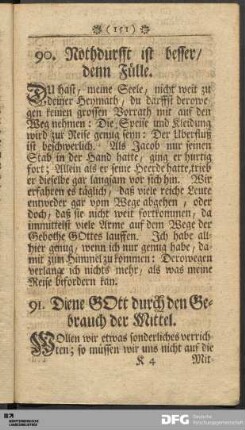 (151)
90. Nothdurfft ist besser/
denn Fülle.
DU hast, meine Seele, nicht weit zu
deiner Heymath, du darffst derowe-
gen keinen grossen Vorrath mit auf den
Weg nehmen: Die Speise und Kleidung
wird zur Reise genug seyn: Der Uberfluß
ist beschwerlich. Als Jacob nur seinen
Stab in der Hand hatte, ging er hurtig
fort; Allein als er seine Heerde hatte, trieb
er dieselbe gar langsam vor sich hin. Wir
erfahren es täglich, daß viele reiche Leute
entweder gar vom Wege abgehen, oder
doch, daß sie nicht weit fortkommen, da
immittelst viele Arme auf dem Wege der
Gebothe GOttes lauffen. Ich habe all-
hier genug, wenn ich nur genug habe, da-
mit zum Himmel zu kommen: Derowegen
verlange ich nichts mehr, als was meine
Reise befordern kan.
91. Diene GOtt durch den Ge-
brauch der Mittel.
WOllen wir etwas sonderliches verrich-
ten; so müssen wir uns nicht auf die
K 4 Mit-
DFG Deutsche
Forschungsgemeinschaft